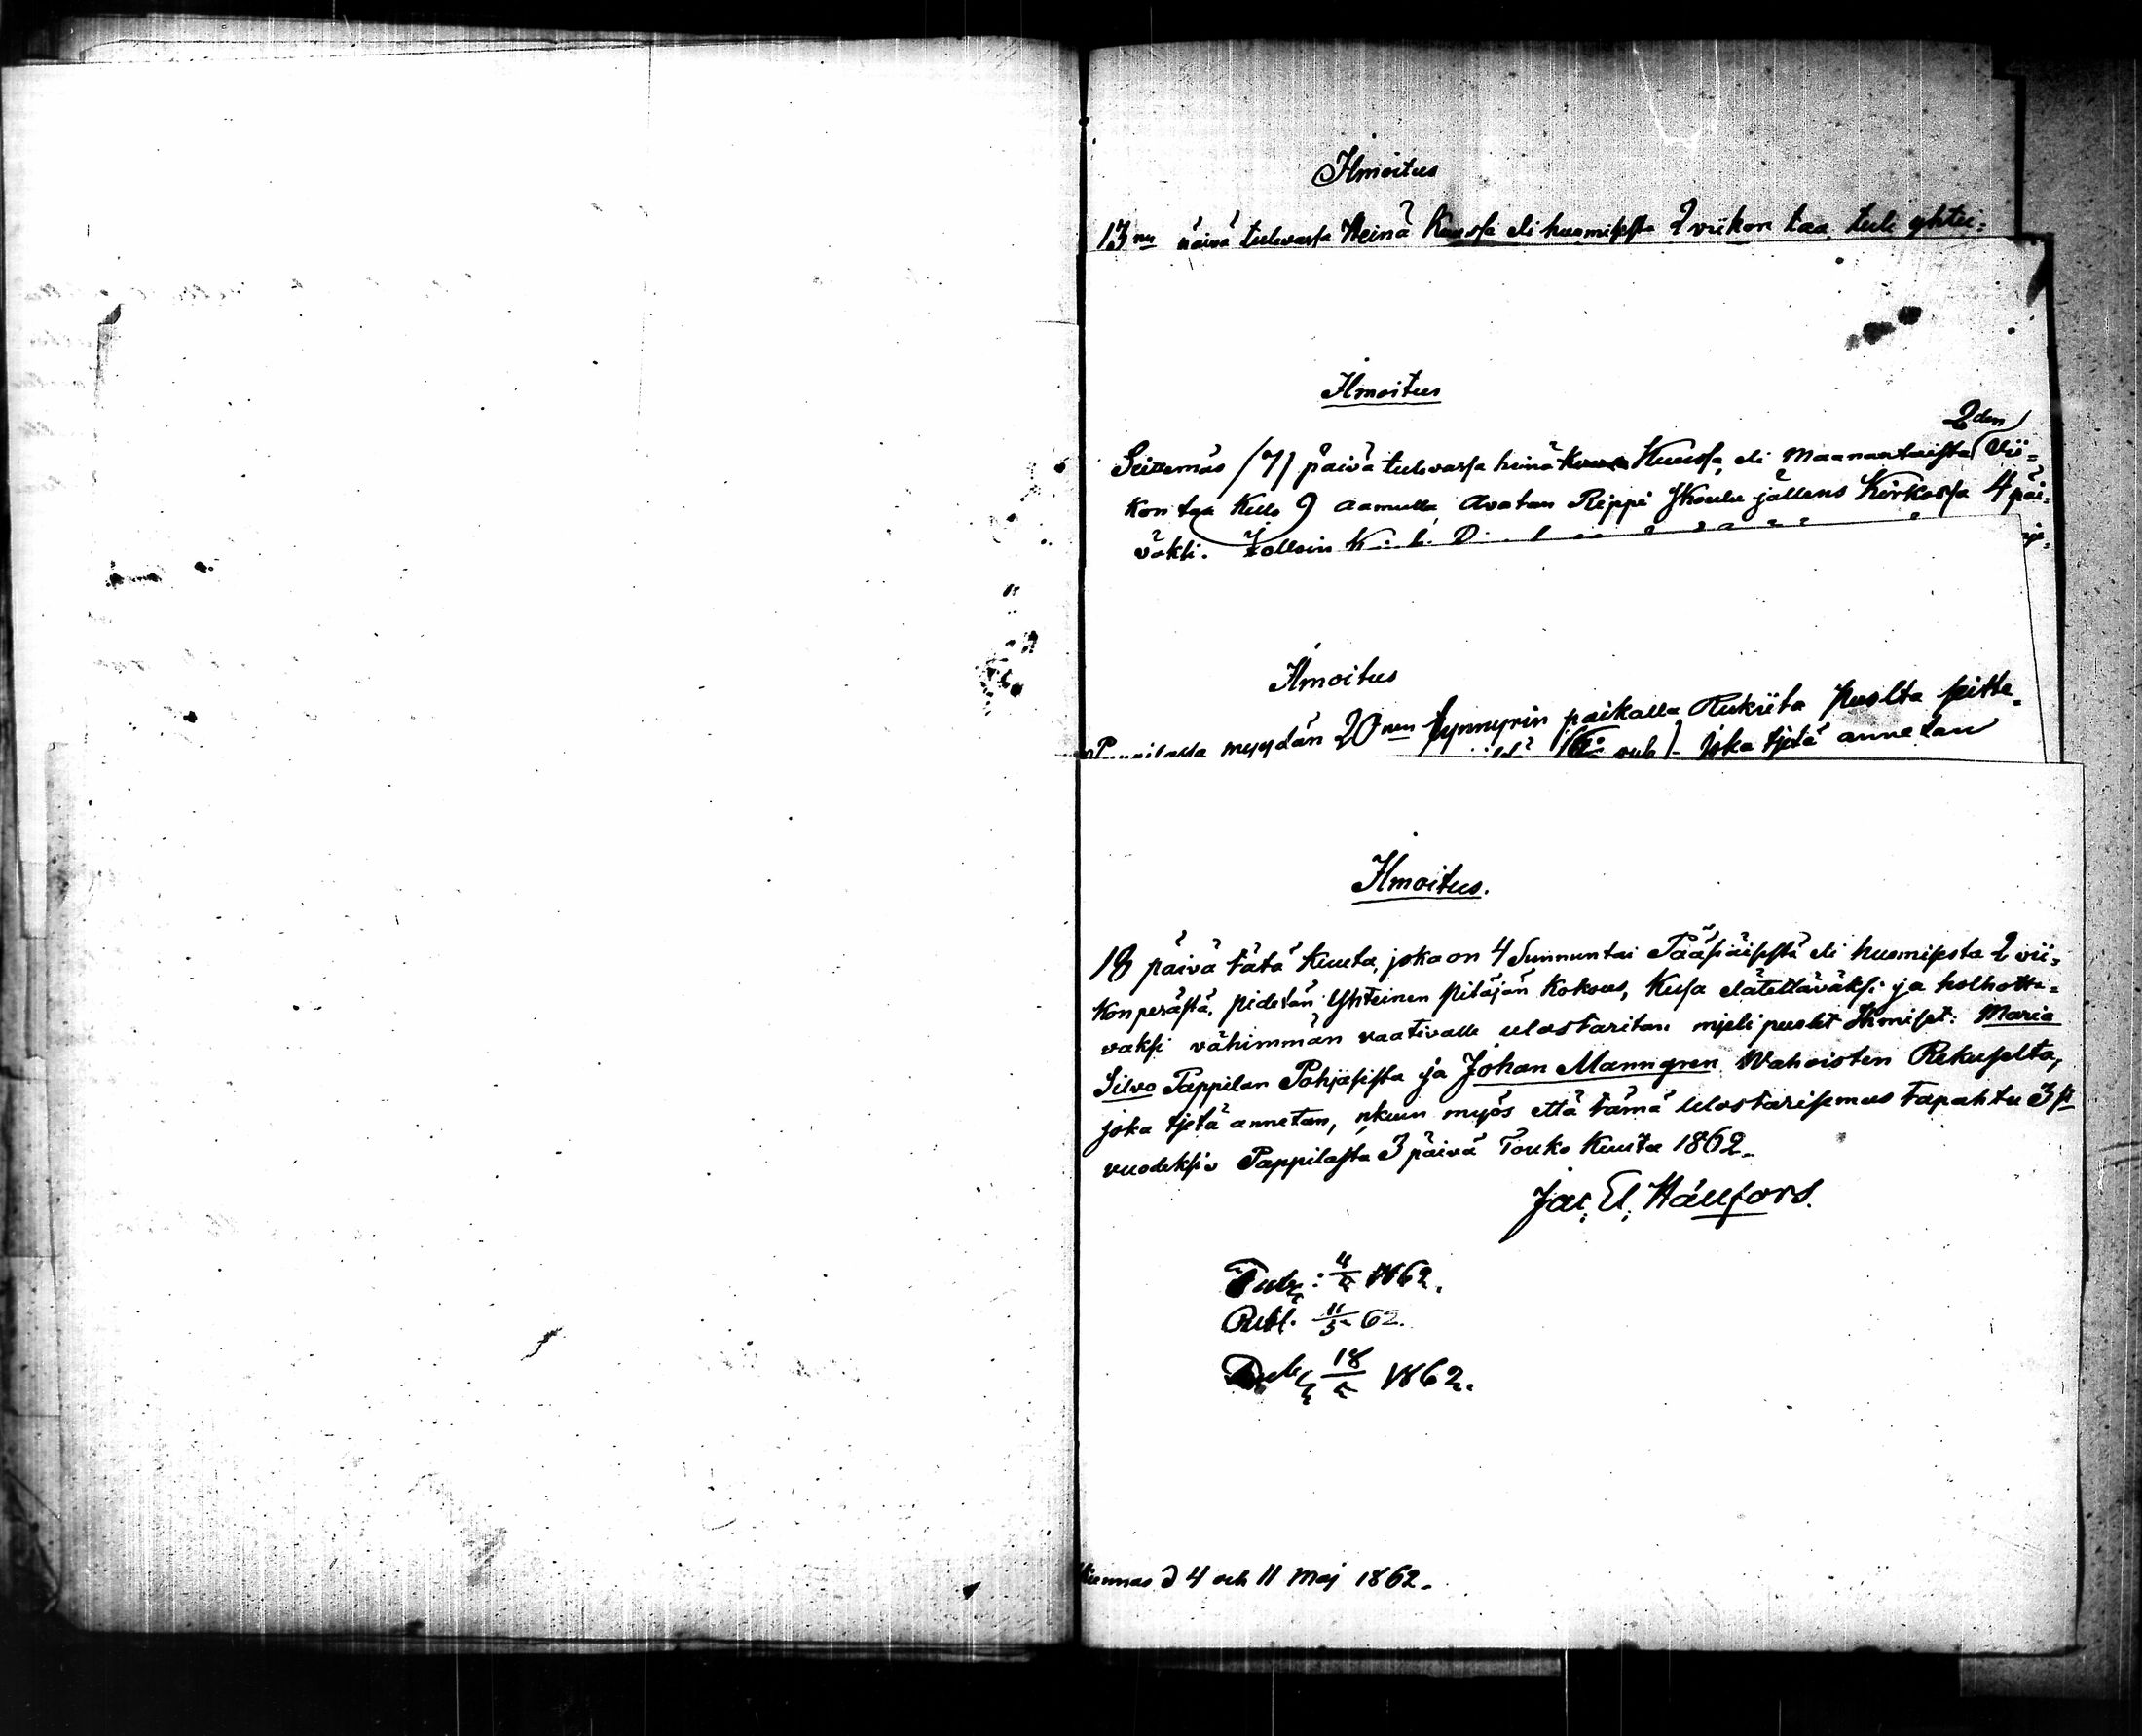 Ilmoitus
13nen päivä tulevassa Heinä Kuussa eli huomisesta 2 viikon taa, tule yhtei=
Ilmoitus
Seitemäs (7) päivä tulevassa heinä Kuussa, eli Maanantaista 2den Vii=
kon taa Kello 9 aamulla, avatan Rippi Skoulu jällens Kirkossa 4 päi=
väksi. Jolloin
Ilmoitus
myydän 20nen tynnyrin paikalla Rukiita puolta sitte
rub). Joka tjetä annetan
Ilmoitus.
18 päivä tätä Kuuta, joka on 4 Sunnuntai Pääsiäisestä eli huomisesta 2 vii=
kon perästä, pidetän Yhteinen Pitäjän Kokous, Kusa elätettäväksi ja holhotta=
vaksi vähimmän vaativalle ulostaritan mjeli puolet Ihmiset: Maria
Silvo Pappilan Pohjasista ja Johan Manngren Wahoisten Rekuselta,
joka tjetä annetan, nkuin myös että tämä Ulostarisemus tapahtu 3
vuodeksi. Pappilasta 3 päivä Touko Kuuta 1862.
Jac. E. Hällfors.
Publ: 4/5 1862.
Publ. 11/5 62.
Publ 18/5 1862.
Kunnas d 4 och 11 Maj 1862.